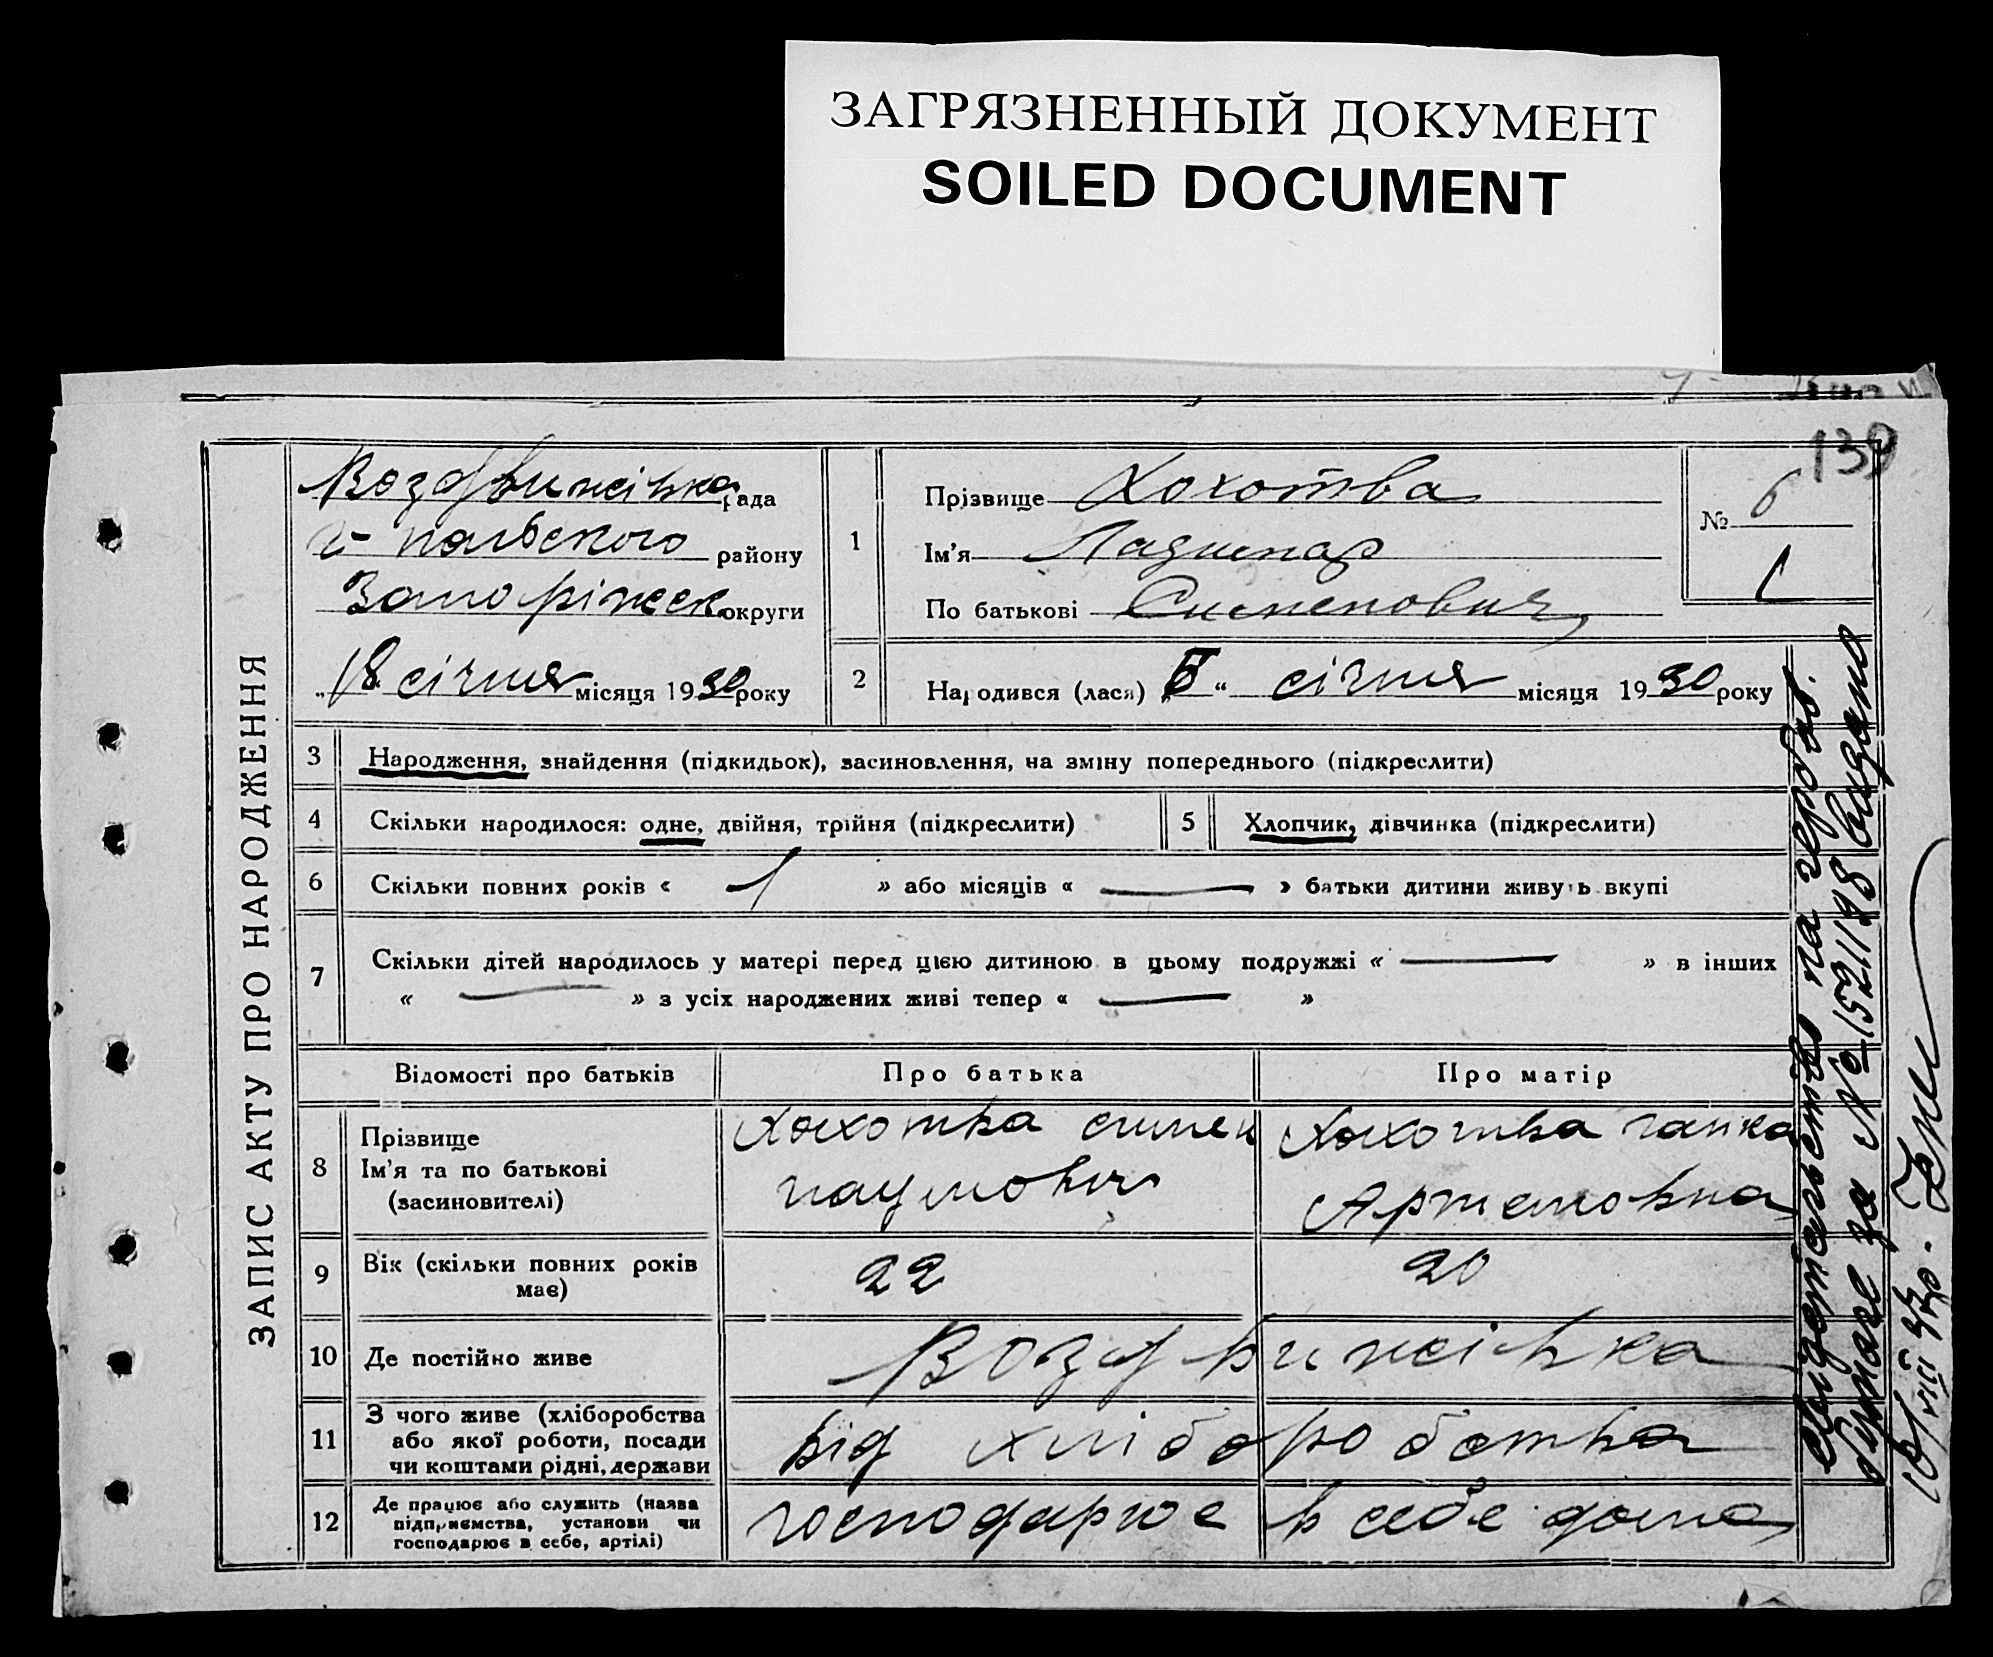 ЗАГРЯЗНЕННЫЙ ДОКУМЕНТ
SOILED DOCUMENT
139
ЗАПИС АКТУ ПРО НАРОДЖЕННЯ
Воздвижівка рада
г-польского району
Запоріжск округи
„18 січня місяця 1930 року
1
Прізвище Хохотва
Ім'я
По батькові Сименович
№ 6
1
2
Народився (лася) „6“ січня місяця 1930 року
3 Народження, знайдення (підкидьок), засиновлення, на зміну попереднього (підкреслити)
4 Скільки народилося: одне, двійня, трійня (підкреслити) 5 Хлопчик, дівчинка (підкреслити)
6 Скільки повних років « 1 » або місяців « — » батьки дитини живуть вкупі
7 Скільки дітей народилось у матері перед цією дитиною в цьому подружжі « — » в інших
« — » з усіх народжених живі тепер « — »
Відомості про батьків Про батька Про матір
8 Прізвище
Ім'я та по батькові
(засиновителі)
Хохотва симен
наумович
Хохотва ганка
Артемовна
9 Вік (скільки повних років має) 22 20
10 Де постійно живе Воздвижівка
11 З чого живе (хліборобства
або якої роботи, посади
чи коштами рідні, держави
від хліборобства
12 Де працює або служить (назва
підприємства, установи чи
господарює в себе, артілі)
господарює в себе дома
за № 1521198 видано